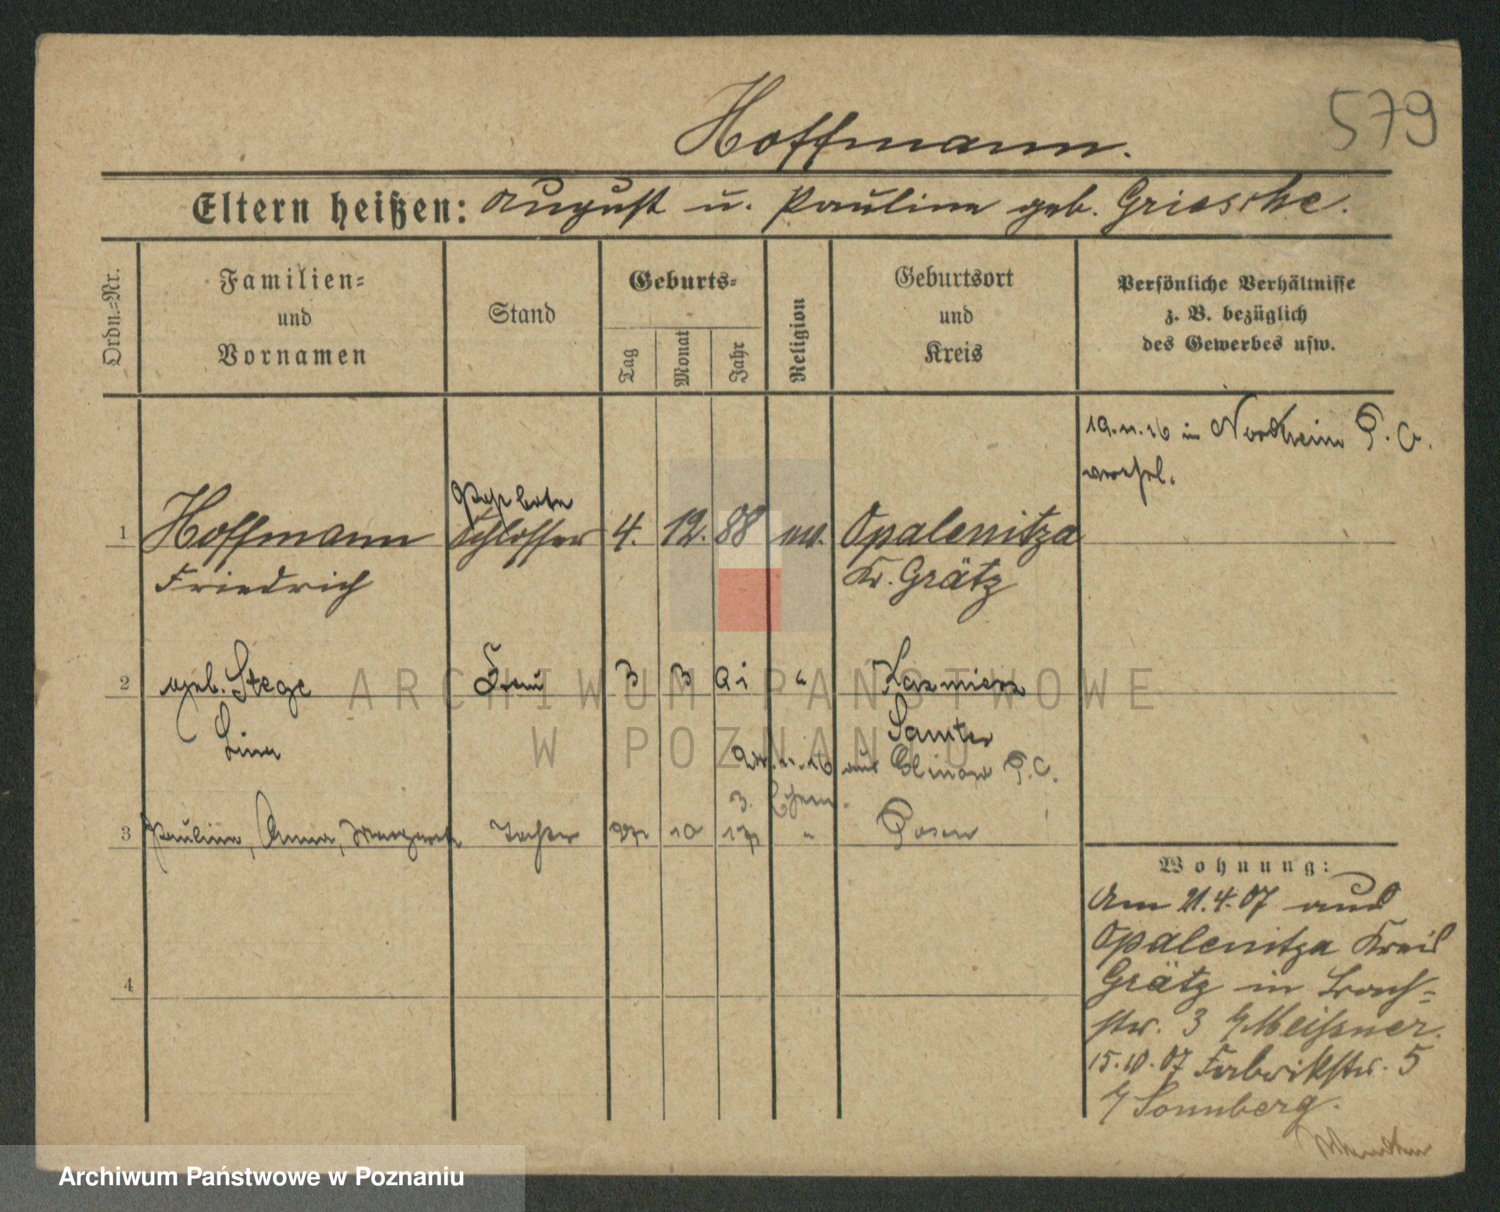 579
Hoffmann.
Eltern heißen: August u. Pauline geb. Grieschke.
Ordn.=Nr.
Familien=
und
Vornamen
Stand
Geburts=
Tag
Monat
Jahr
Religion
Geburtsort
und
Kreis
Persönliche Verhältnisse
z. B. bezüglich
des Gewerbes usw.
19.11.16 in Nordheim P. C.
1 Hoffmann Schlosser 4. 12. 88 ev. Opalenitza
Friedrich Kr. Grätz
2 geb. Stege Frau 3 3 91 " Kazmierz
Lina Samter
11.16 aus P. C.
3. Ehem.
3 Pauline, Anna, Margarete Tochter 10 " Posen
4
Wohnung:
Am 21.4.07 aus
Opalenitza Kreis
Grätz in Bach=
str. 3 b/ Meißner.
15.10.07 Fabrikstr. 5
b/ Sonnberg.
ARCHIWUM PAŃSTWOWE
W POZNANIU
Archiwum Państwowe w Poznaniu